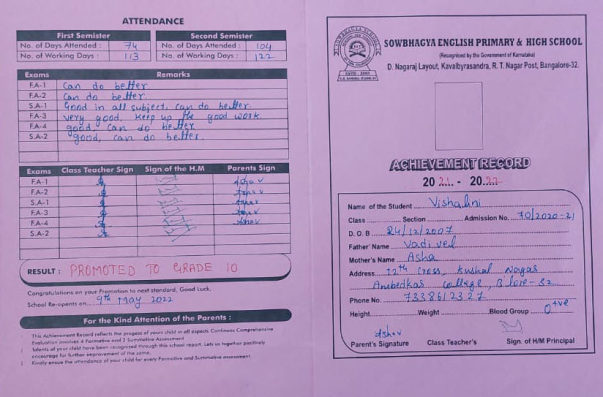 ATTENDANCE
First Semister Second Semister
No. of Days Attended : 74 No. of Days Attended : 104
No. of Working Days : 113 No. of Working Days : 122
Exams Remarks
F.A-1 can do better
F.A-2 can do better.
S.A-1 Good in all subject, can do better.
F.A-3 very good. keep up the good work.
F.A-4 good, can do better
S.A-2 good, can do better.
Exams Class Teacher Sign Sign of the H.M Parents Sign
F.A-1
F.A-2
S.A-1
F.A-3
F.A-4
S.A-2
RESULT : PROMOTED TO GRADE 10
Congratulations on your Promotion to next standard, Good Luck.
School Re-opens on... 9th MAY 2022
For the Kind Attention of the Parents :
This Achievement Record reflects the progess of your child in all aspects Continues Comprehensive
Evaluation involves 4 Formative and 2 Summative Assessment
Talents of your child have been recognised through this school report. Lets us together positively
encourage for further improvement of the same.
Kindly ensure the attendance of your child for every Formative and Summative assessment.
SOWBHAGYA ENGLISH PRIMARY & HIGH SCHOOL
(Recognised by the Government of Karnataka)
D. Nagaraj Layout, Kavalbyrasandra, R. T. Nagar Post, Bangalore-32.
ACHIEVEMENT RECORD
20 21 - 20 22
Name of the Student Vishalini
Class Section Admission No. 70/2020-21
D. O. B 24/12/2007
Father' Name Vadivel
Mother's Name Asha
Address 12th Cross, Kushal Nagar
Ambedkar College, B'lore-32
Phone No. 7338612327
Height Weight Blood Group O+ve
Parent's Signature Class Teacher's Sign. of H/M Principal